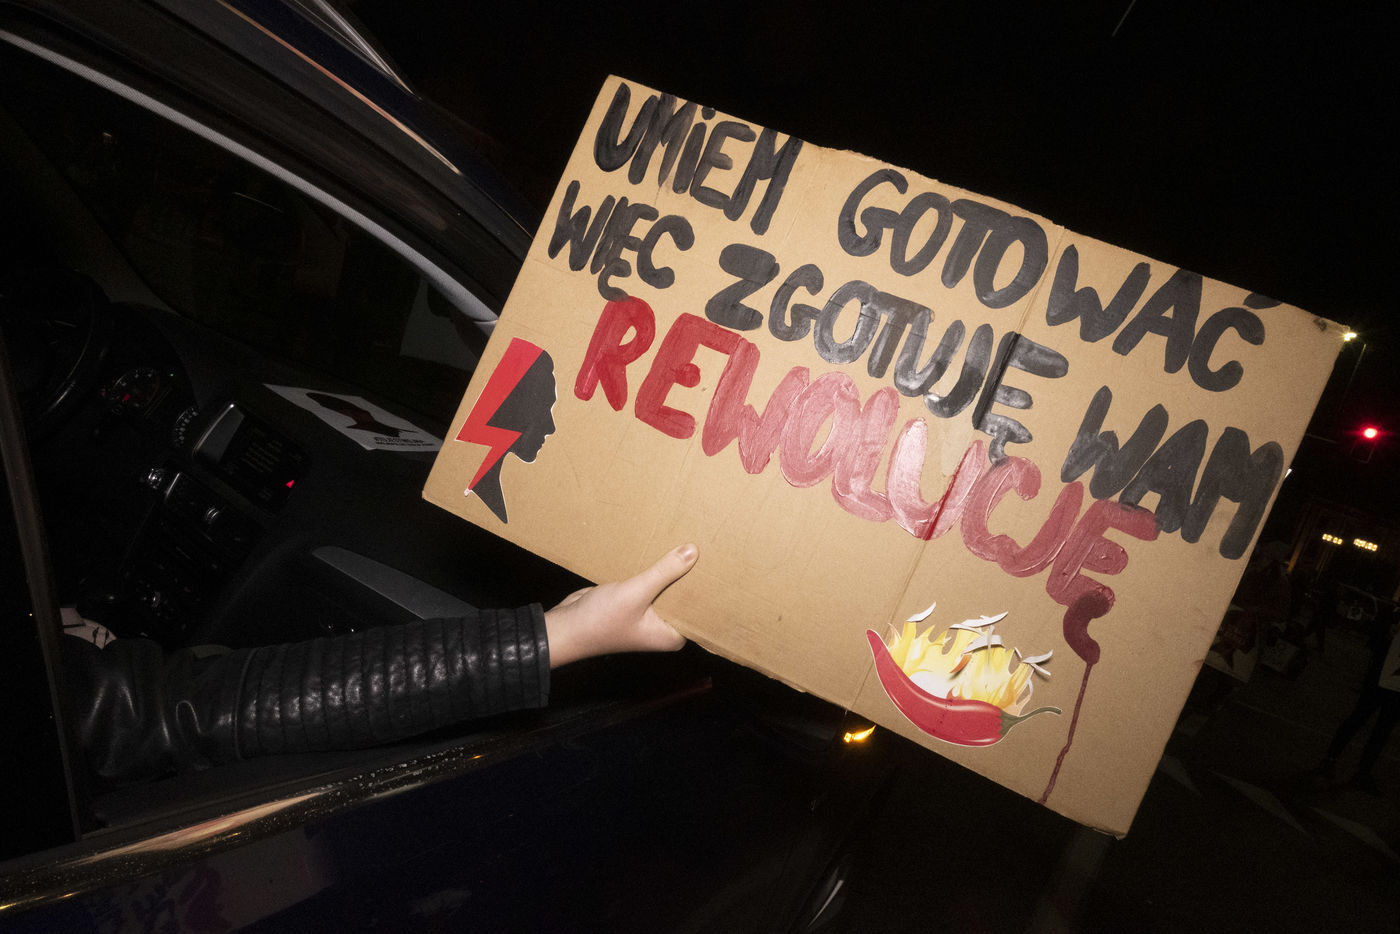 UMiEM GOTOWAĆ
WIĘC ZGOTUJĘ WAM
REWOLUCJĘ